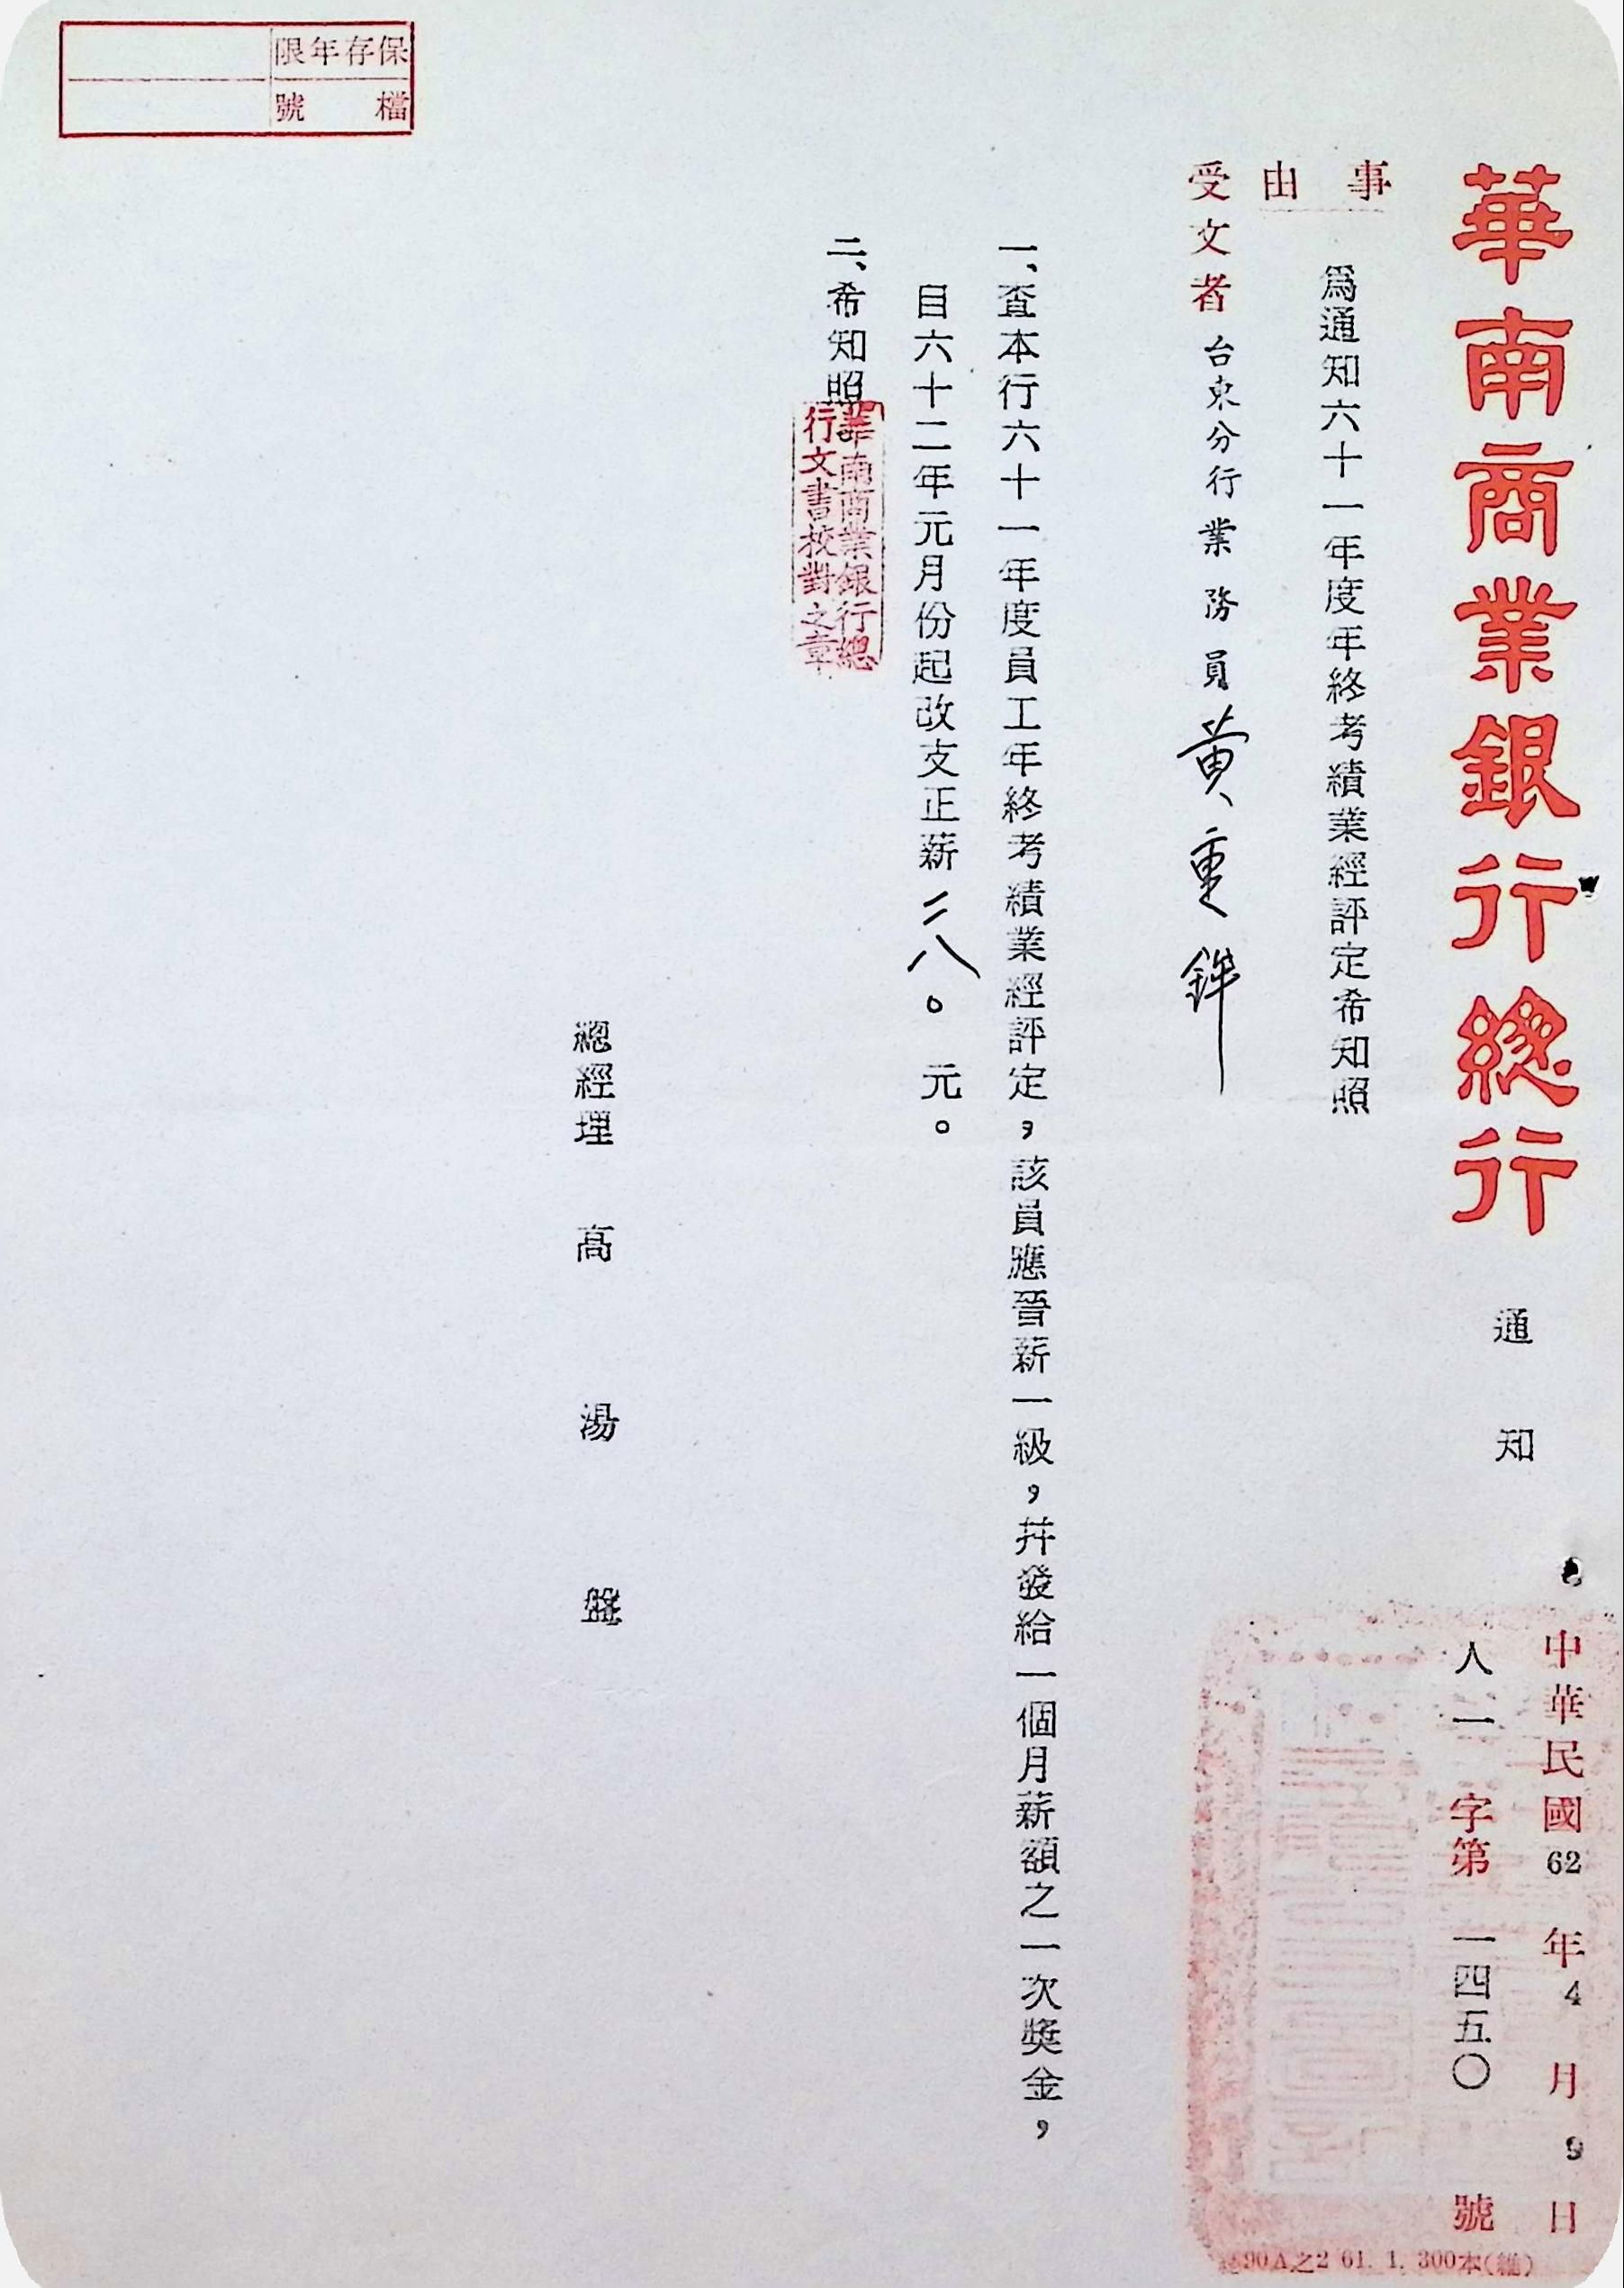 華南商業銀行總行 通知
中華民國62年4月9日
人二字第一四五〇號
事由
為通知六十一年度年終考績業經評定希知照
受文者 台東分行業務員黃重鉾
一、查本行六十一年度員工年終考績業經評定,該員應晉薪一級,并發給一個月薪額之一次獎金,
自六十二年元月份起改支正薪二八〇元。
二、希知照
華南商業銀行總
行文書校對之章
總經理 高湯盤
保存年限
檔號
90A之2 61. 1. 300本